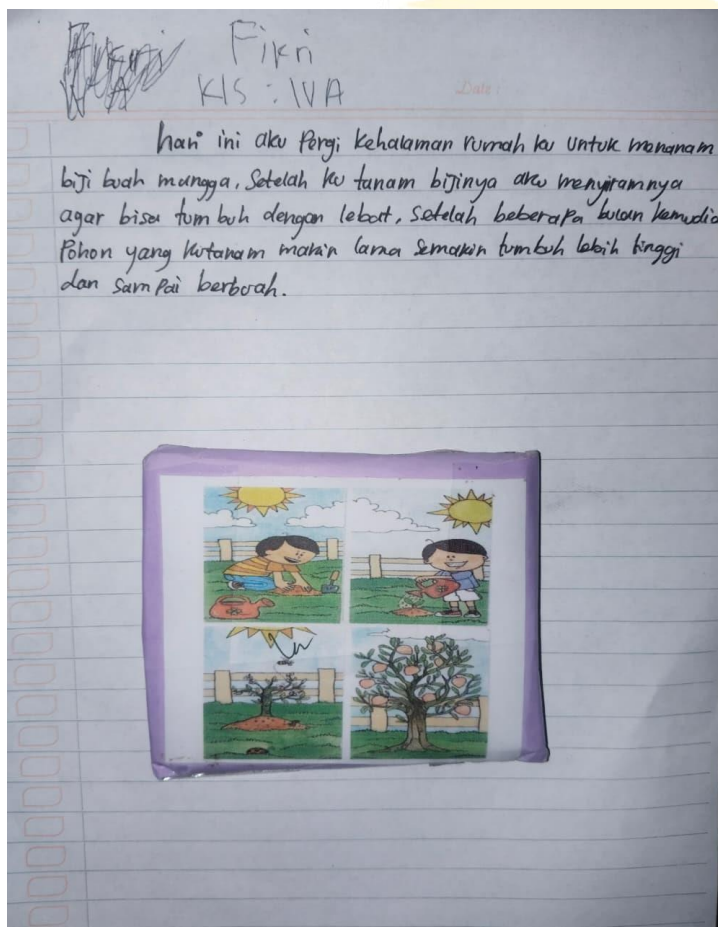 Fikri
Kls : IVA
Date :
hari ini aku Pergi Kehalaman rumah ku untuk menanam
biji buah mangga, Setelah ku tanam bijinya aku menyiramnya
agar bisa tumbuh dengan lebat, setelah beberapa bulan kemudia
Pohon yang kutanam makin lama semakin tumbuh lebih tinggi
dan sampai berbuah.